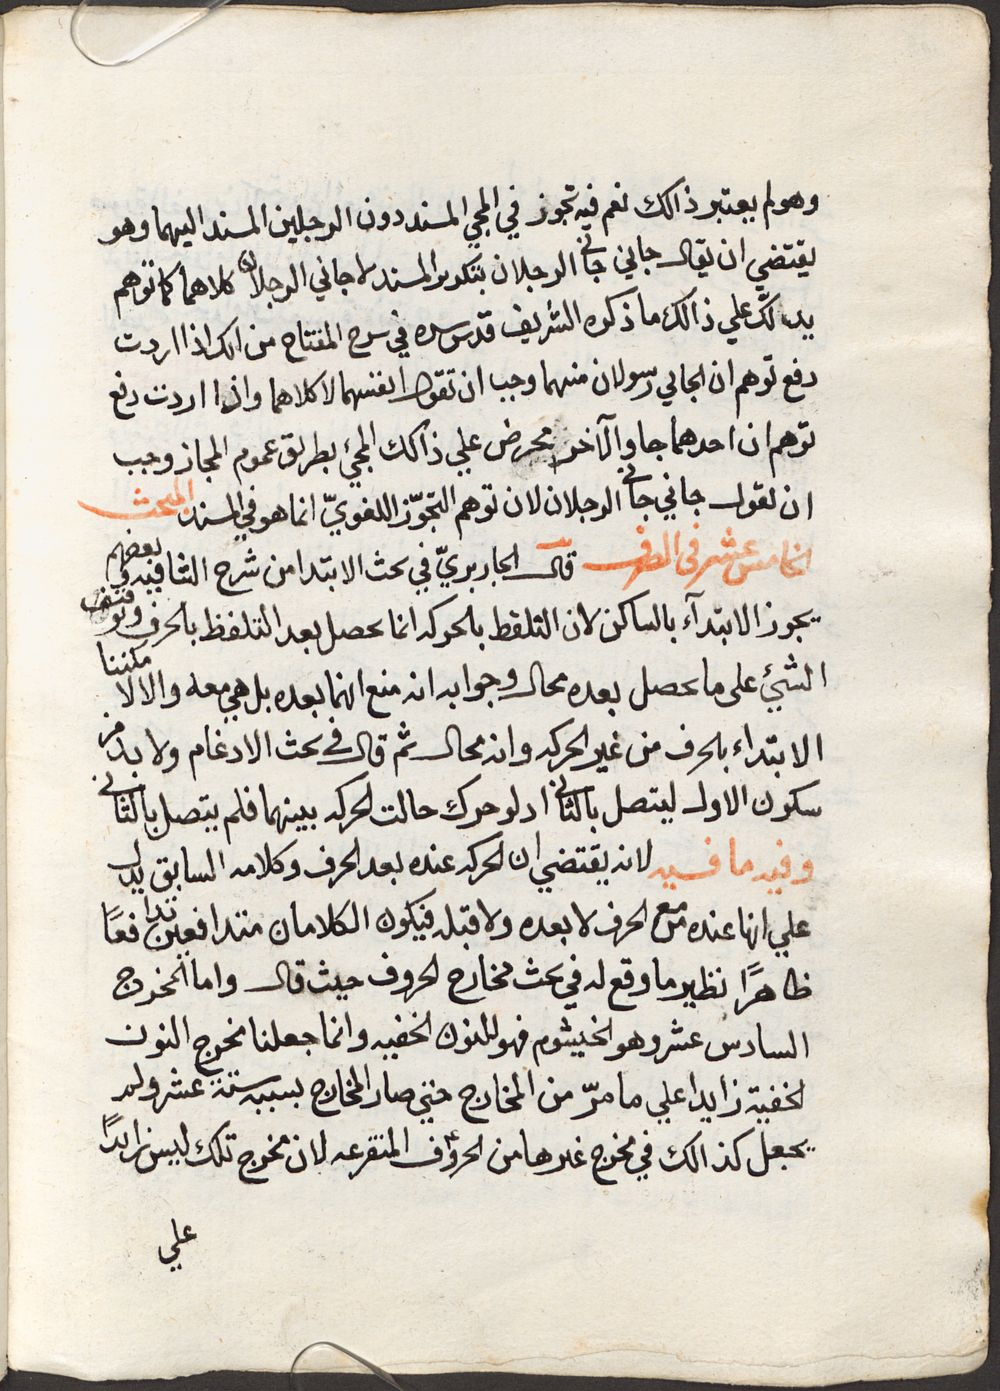 وهو لم يعتبر ذالك نعم فيه تجوز في المجي المسند دون الرجلين المسند اليهما وهو
يقتضي ان يقال جاني جاني الرجلان بتكرير المسند لا جاني الرجلان كلاهما كما توهم
يدلك علي ذالك ما ذكره الشريف قدس سره في شرح المفتاح من انك اذا اردت
دفع توهم ان الجائي رسولان منهما وجب ان تقول انفسهما لا كلاهما واذا اردت دفع
توهم ان احدهما جا والآخر محرض علي ذالك المجئ بطريق عموم المجاز وجب
ان تقول جاني جاني الرجلان لان توهم التجوّز اللغويّ انما هو في المسند المبحث
الخامس عشر في الصرف قال الجاربرديّ في بحث الابتدا من شرح الشافيه وبعضهم
يجوز الابتدآء بالساكن لان التلفظ بالحركه انما يحصل بعد التلفظ بالحرف وتوقف
الشئ على ما يحصل بعده محال وجوابه انه منع انها بعده بل هي معه والا لامكننا
الابتداء بالحرف من غير الحركه وانه محال ثم قال في بحث الادغام ولا بد من
سكون الاول ليتصل بالثاني اذ لو حرك حالت الحركه بينهما فلم يتصل بالثاني
وفيه ما فيه لانه يقتضي ان الحركه عنده بعد الحرف وكلامه السابق يدل
علي انها عنده مع الحرف لا بعده ولا قبله فيكون الكلامان متدافعين تدافعًا
ظاهرًا نظير ما وقع له في بحث مخارج الحروف حيث قال واما المخرج
السادس عشر وهو الخيشوم فهو للنون الخفيه وانما جعلنا مخرج النون
الخفية زايدا علي ما مرّ من المخارج حتي صار المخارج بسببه ستة عشر ولم
يجعل كذالك في مخرج غيرها من الحروف المتفرعه لان مخرج تلك ليس زايدًا
علي